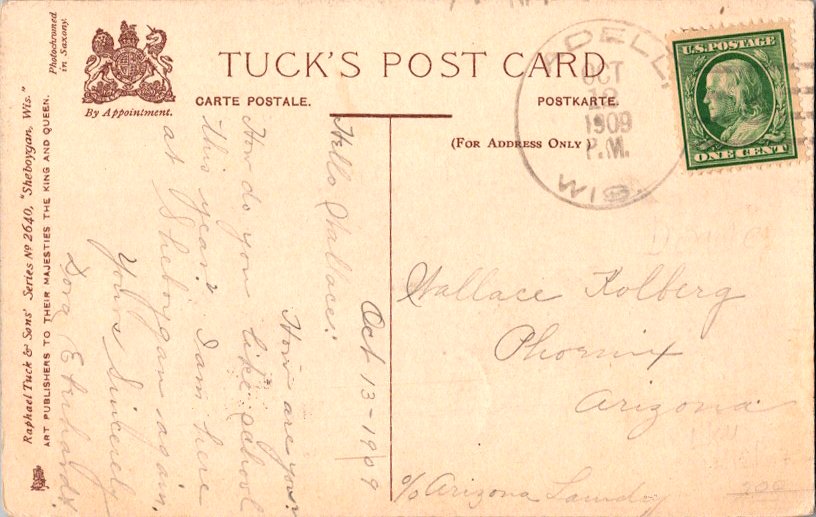 Photochromed
in Saxony.
By Appointment.
TUCK'S POST CARD
CARTE POSTALE.
POSTKARTE.
(FOR ADDRESS ONLY)
ADELL,
OCT
12
1909
P.M.
WIS.
U.S. POSTAGE
ONE CENT
Raphael Tuck & Sons' Series Nº 2640, "Sheboygan, Wis."
ART PUBLISHERS TO THEIR MAJESTIES THE KING AND QUEEN.
Oct 13-1909
Hello Wallace:
How are you?
How do you like school
this year? I am here
at Sheboygan again.
Yours Sincerely
Dora
Wallace Kolberg
Phoenix
Arizona
c/o Arizona Laundry
200